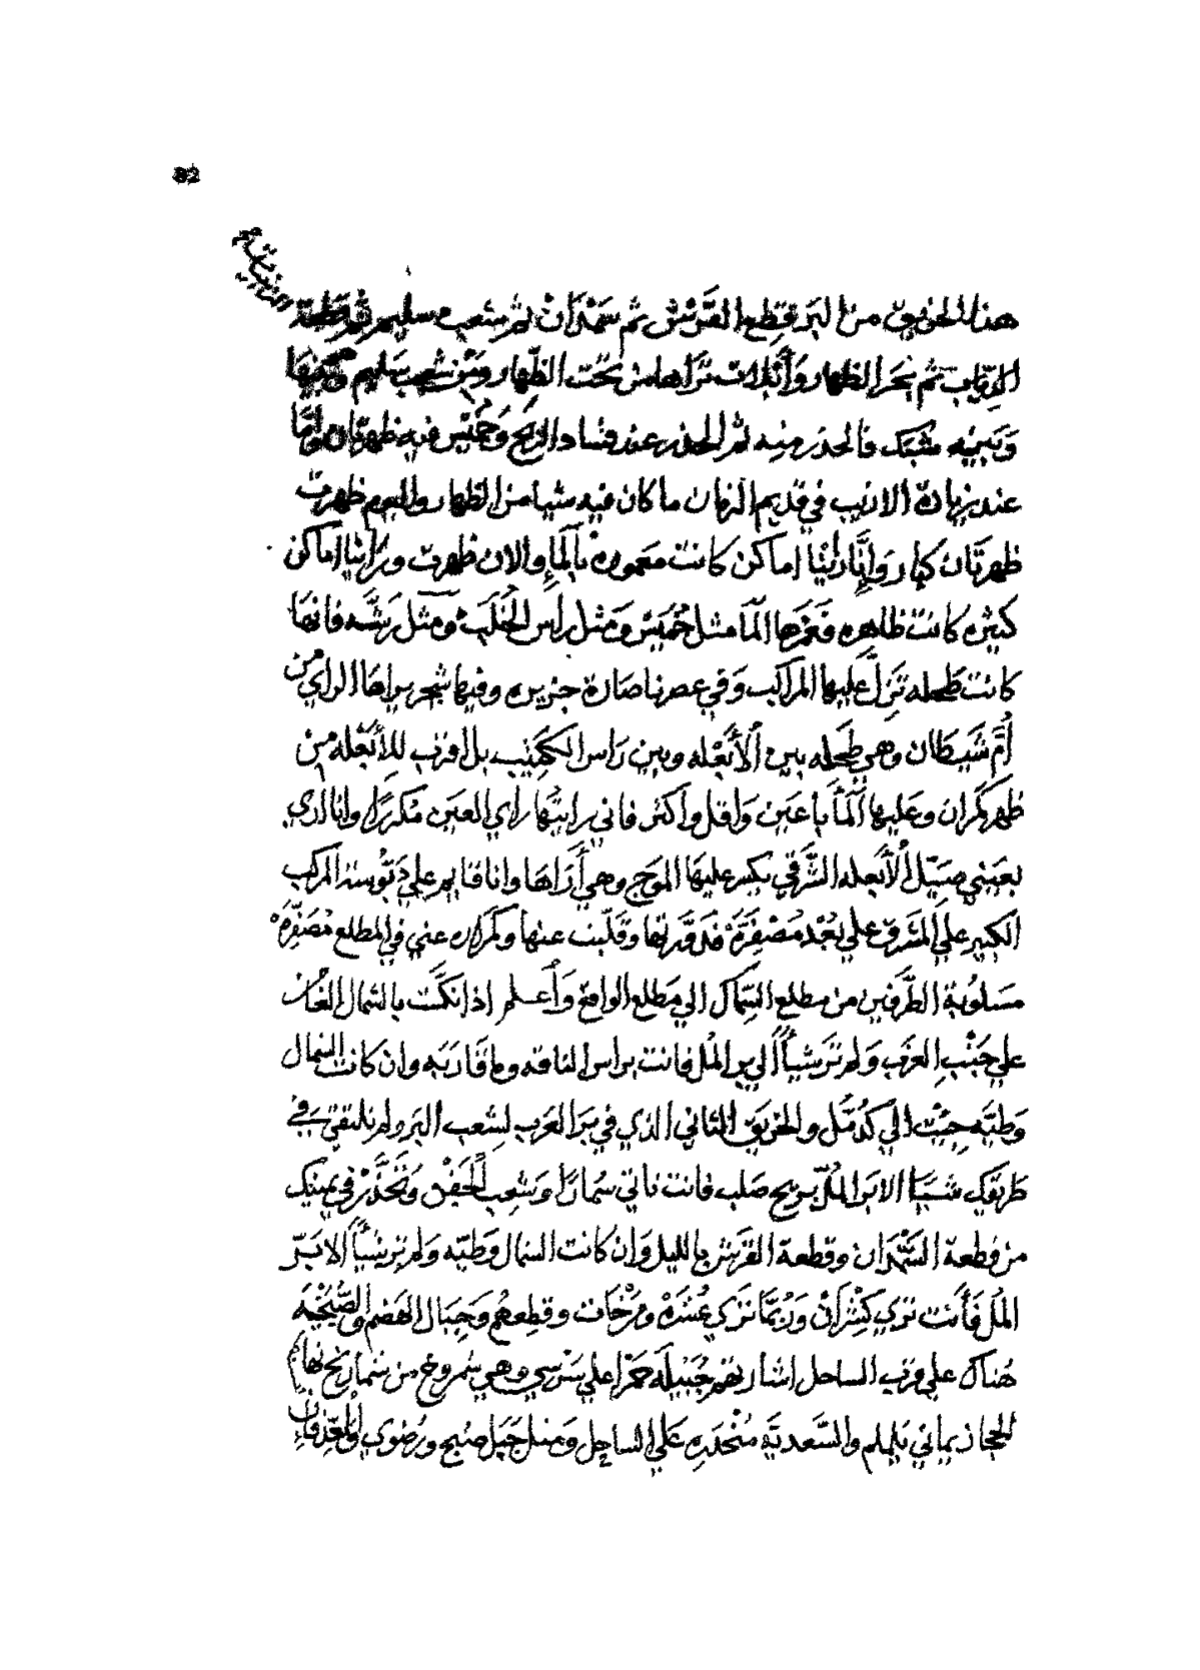 82
هذا الحزيق من البر قطع القرش ثم سمدان ثم شعب سليم ثم قطعة
ثم بحر الظهار وأبلات تراها من تحت الظهار وبين شعب سليم
وبينه شبك فالحذر منه ثم الحذر عند فساد الريح وخميس فيه ظهرتان وإنما
عند زيادة الازيب في قديم الزمان ما كان فيه شيا من الظهار واليوم ظهرت
ظهرتان كبار وإنا رأينا اماكن كانت مغموره بالمإ والان ظهرت ورأينا اماكن
كثيره كانت ظاهره فغمرها المآ مثل خميس ومثل راس الخلب ومثل رشه فانها
كانت طحله تنزل عليها المراكب وفي عصرنا صارة جزيره وفيها شجر يراها الراي من
أم شيطان وهي طحله بين الأبعله وبين راس الكثيب بل اقرب للأبعله من
ظهر كمران وعليها المآ باعين واقل وأكثر فاني رايتها راي العين مكررا وانا ادري
بعيني صيبل الأبعله الشرقي يكسر عليها الموج وهي أراها وانا قايم علي دبوسة المركب
الكبير علي المشرق علي بعد مصفرة قد ورتها وقلبت عنها وكمران عني في المطلع مصفره
مسلوبة الطرفين من مطلع السماك الي مطلع الواقع وأعلم اذا نكت بالشمال
علي جنب العرب ولم تر شيأ الي بر المل فانت براس الناقه وما قاربه وان كانت الشمال
وطيه جيت الي كدمل والحزيق الثاني الذي في بر العرب لشعب البر ولم تلتقي في
طريقك شيا الا بر المل بريح صلب فانت تاتي سمارا وشعب الجفن وتحذر في يمينك
من قطعة السمدان وقطعة القرش بالليل وان كانت الشمال وطيه ولم تر شيأ الا بر
المل فأنت تري كثران وربما تري عشره ومرخات وقطوعهم وجبال الهضم والصبحيه
هناك علي قرب الساحل اشارتهم جبيله حمرا علي سرسي وهي شمروخ من شماريخ تهايم
الحجاز يماني يلملم والسعدية منحدره علي الساحل ومثل جبل صبح ورضوي